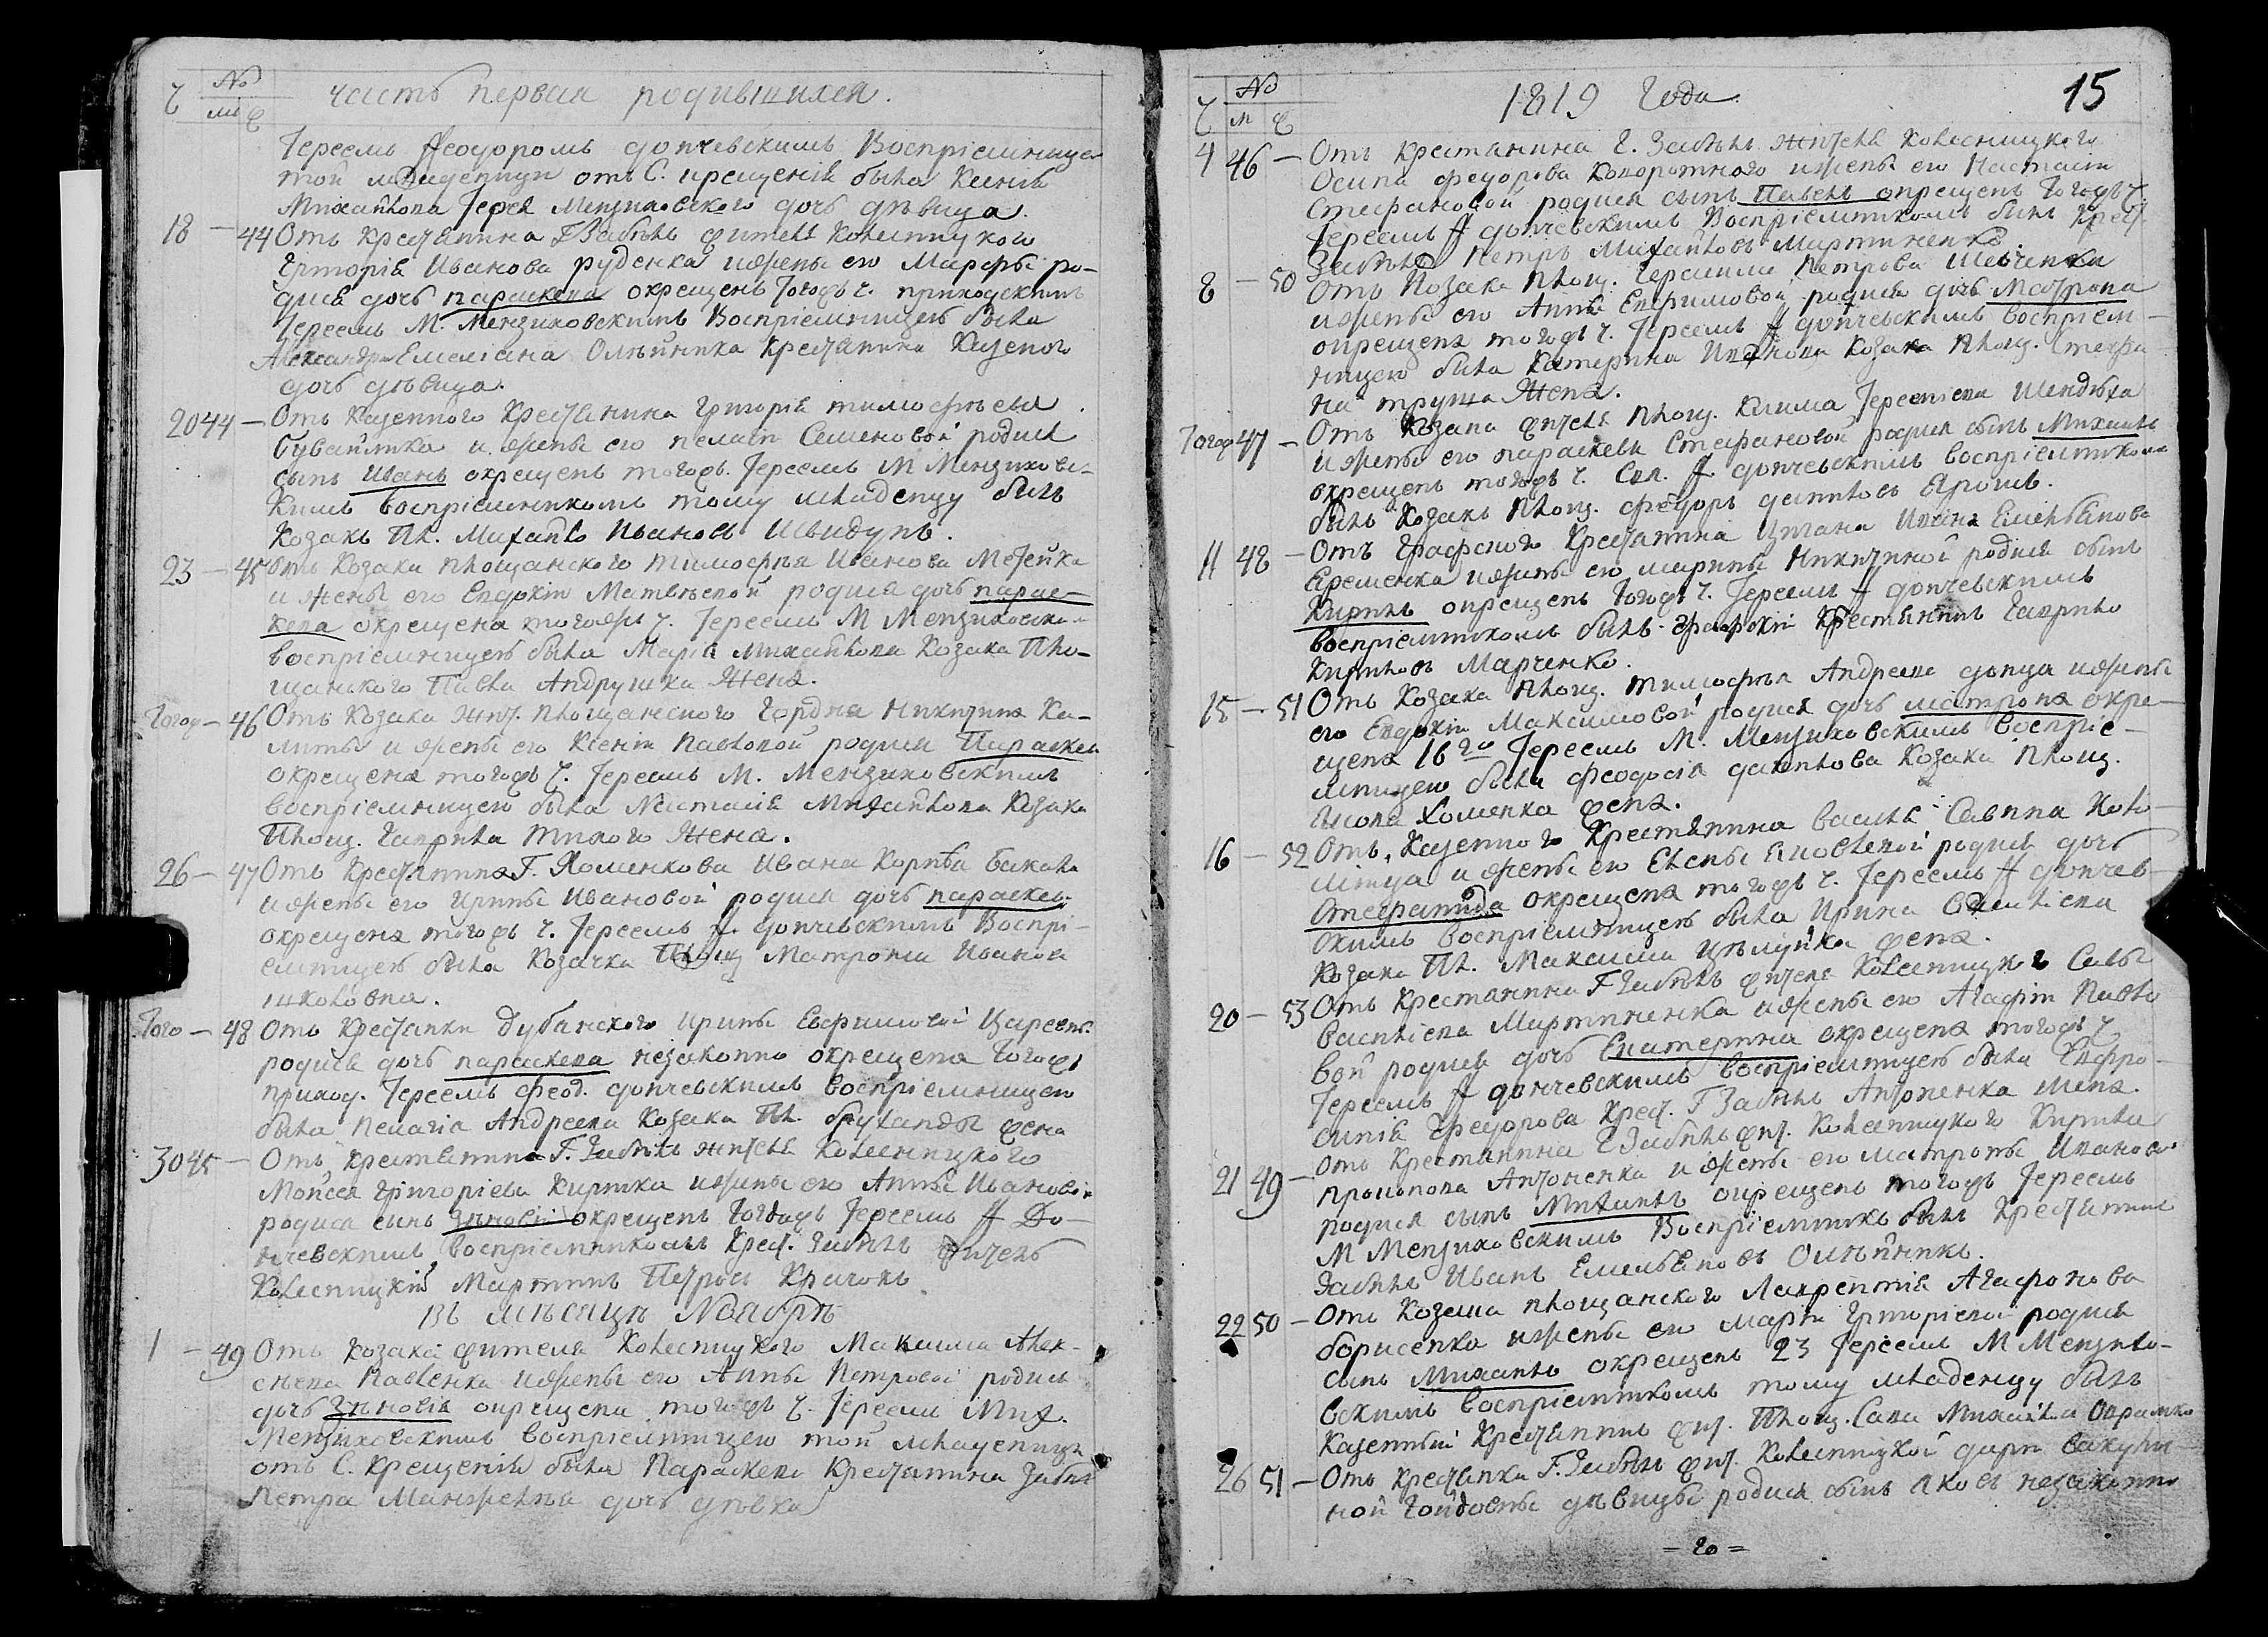 Ч № м Ч часть первая родившихся.
Іереемъ Ѳеодоромъ дончевскимъ Воспріемницею
той младеницы отъ С. крещенія была Ксенія
Михайлова Іерея Мензиковского дочь дѣвица.
18 — 44 Отъ Крестянина Г Забѣлъ жителя Колесницкого
Григорія Иванова руденка ижены его Марѳы ро-
дися дочь параскева окрещенъ Тогожъ ч. приходскимъ
Іереемъ М. Мензиковскимъ Воспріемницею была
Александра Емеліана Олѣйника Крестянина Казеного
дочь дѣвица.
20 44 — Отъ Казенного Крестянина Григорія тимоѳѣева
бувайлика и жены его пелагіи Семеновой родися
сынъ Иванъ окрещенъ тогожъ. Іереемъ М Мензиковс-
кимъ воспріемникомъ тому младенцу былъ
Козакъ Пл. Михайло Ивановъ Швидунъ.
23 — 45 Отъ Козака площанского тимоѳѣя Иванова Метейка
и жены его Евдокіи Матвѣевой родися дочь парас-
кева окрещена тогожъ ч. Іереемъ М Мензиковски
воспріемницею была Марія михайлова Козака Пло-
щанского Павла Андрушка Жена.
Тогож — 46 Отъ Козака жит. площанского Гордѣя Никитина Ка-
литы и жены его Ксеніи павловой родися Параскева
окрещена тогожъ ч. Іереемъ М. Мензиковскимъ
воспріемницею была Настасія Михайлова Козака
Площ. Гаврила тихого Жена.
26 — 47 Отъ Крестянина Г. Хоменкова Ивана Корнѣя бакала
ижены его Ирины Ивановой родися дочь параскев
окрещена тогожъ ч. Іереемъ Ѳ. дончевскимъ Воспрі-
емницею была Козачка Площ Матрона Иванова
школовна.
Того — 48 Отъ Крестянки дубанского ирины Евфимовой Царевны
родися дочь параскева незаконно окрещена Тогожъ
приход. Іереемъ Ѳеод. дончевскимъ воспріемницею
была Пелагія Андреева Козака Пл. бруханды жена
30 45 — Отъ Крестянина Г. Забѣлъ жителя Колесницкого
Мойсея Григоріева Кирика ижены его Анны Ивановой
родися сынъ Зѣновій окрещенъ Тогожъ Іереемъ Ѳ До-
нчевскимъ воспріемникомъ Крест. Забѣлъ житель
Колесницкій Мартинъ Петровъ Крачокъ
Въ мѣсяцѣ Ноябрѣ
1 — 49 Отъ Козака жителя Колесницкого Максима Алек-
сѣева Павленка ижены его Анны Петровой родися
дочь Зѣновія окрещена тогожъ ч. Іереемъ Мих.
Мензиковскимъ воспріемницею той младеници
отъ С. Крещенія была Параскева Крестянина Забѣл
Петра Манжелѣя дочь дѣвка
Ч № м Ч 1819 Года 15
4 46 — Отъ Крестянина Г. Забѣлъ жителя Колесницкого
Осипа Федорова Коворотного ижены его Настасіи
Стефановой родися сынъ Павелъ окрещенъ Тогожъ ч
Іереемъ Ѳ дончевскимъ Воспріемникомъ былъ Крест
Забѣлъ Петръ Михайловъ Мартиненко.
8 — 50 Отъ Козака Площ. Герасима Петрова Шевченка
ижены его Анны Евфимовой родися дочь Матрона
окрещена тогожъ ч. Іереемъ Ѳ дончевскимъ воспріем-
ницею была Катерина Иванова Козака Площ. Стефа
на труша Жена.
Тогож 47 — Отъ Козака жителя площ. Клима Іеремѣева Шендыха
ижены его параскевы Стефановой родися сынъ Михаилъ
окрещенъ тогожъ ч. Свя. Ѳ. дончевскимъ воспріемникомъ
былъ Козакъ Площ. Федоръ даниловъ Ярошъ.
11 48 — Отъ Графского Крестянина Цигана Ивана Емельянова
Еременка ижены его марины Никитиной родися сынъ
Кирилъ окрещенъ Тогожъ ч. Іереемъ Ѳ дончевскимъ
воспріемникомъ былъ Графскій Крестянинъ Гаврило
Кириловъ Марченко.
15 — 51 Отъ Козака площ. тимоѳѣя Андреева донца ижены
его Евдокіи Максимовой родися дочь матрона окре-
щена 16го Іереемъ М. Мензиковскимъ воспріе-
мницею была Феодосія данилова Козака Площ.
Якова Хоменка жена.
16 — 52 Отъ Казенного Крестянина Василя Савина Коло-
мійца и жены его Елены Яковлевой родися дочь
Степанида окрещена тогожъ ч. Іереемъ Ѳ дончев-
скимъ воспріемницею была Ирина
Козака Пл. Максима Цѣлуйка жена.
20 — 53 Отъ Крестянина Г Забѣлъ жителя Колесницкого Савы
Василіева Мартиненка ижены его Агафіи Павло
вой родися дочь Екатерина окрещена тогожъ ч
Іереемъ Ѳ дончевскимъ воспріемницею была Евфро-
синія Федорова Крест. Г Забѣлъ Антоненка жена.
21 49 — Отъ Крестянина Г Забѣлъ жит. Колесницкого Кирила
прокопова Антоненка и жены его матроны Иванов
родися сынъ Михаилъ окрещенъ тогожъ Іереемъ
М Мензиковскимъ Воспріемникъ былъ Крестянинъ
Забѣлъ Иванъ Емельяновъ Олѣйникъ.
22 50 — Отъ Козака площанского Лаврентія Агафонова
борисенка ижены его маріи Григоріевой родися
сынъ Михаилъ окрещенъ 23 Іереемъ М Мензико-
вскимъ воспріемникомъ тому младенцу былъ
Казенный Крестянинъ жит. Площ. Сава Михайлов
26 51 — Отъ Крестянки Г. Забѣлъ жит. Колесницкой дарии
ной Гойдовны дѣвицы родися сынъ Яковъ незаконно
= 20 =